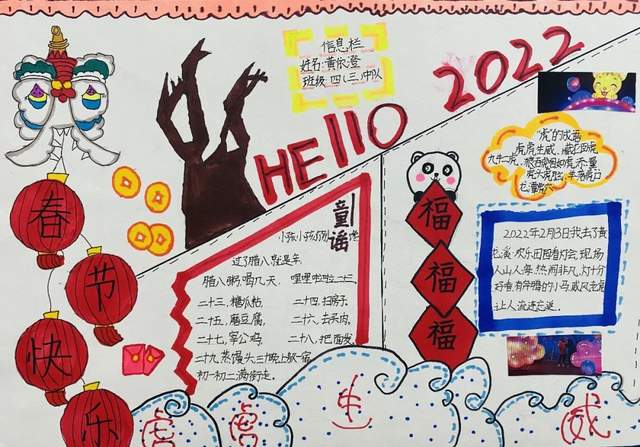 信息栏
姓名:黄依澄
班级:四(三)中队
HEllO 2022
春
节
快
乐
童谣
小孩小孩你别馋
过了腊八就是年
腊八粥,喝几天,哩哩啦啦二十三,
二十三,糖瓜粘, 二十四,扫房子,
二十五,磨豆腐, 二十六,去买肉,
二十七,宰公鸡, 二十八,把面发,
二十九,蒸馒头,三十晚上熬一宿
初一初二满街走。
福
福
福
"虎"的成语
虎虎生威、藏龙卧虎
虎头虎脑、羊落虎口
2022年2月3日我去了黄
欢乐团圆看灯会,现场
人山人海,热闹非凡,灯十分
好看,有年糖的小马,威风老虎
让人流连忘返。
虎
虎
生
威